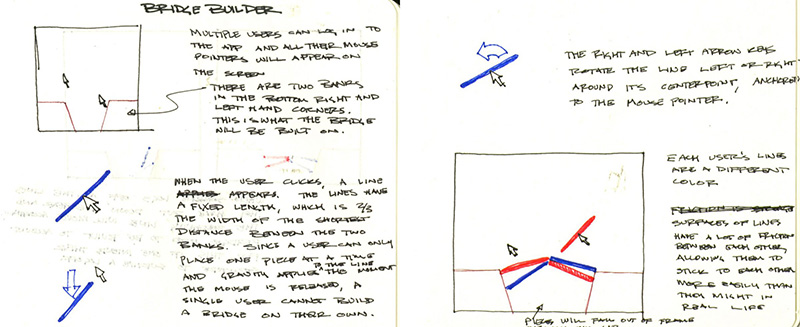 BRIDGE BUILDER
MULTIPLE USERS CAN LOG IN TO
THE APP AND ALL THEIR MOUSE
POINTERS WILL APPEAR ON
THE SCREEN
THERE ARE TWO BANKS
IN THE BOTTOM RIGHT AND
LEFT HAND CORNERS.
THIS IS WHAT THE BRIDGE
WILL BE BUILT ON.
WHEN THE USER CLICKS, A LINE
APPEARS. THE LINES HAVE
A FIXED LENGTH, WHICH IS 2/3
THE WIDTH OF THE SHORTEST
DISTANCE BETWEEN THE TWO
BANKS. SINCE A USER CAN ONLY
PLACE ONE PIECE AT A TIME
TO THE LINE
AND GRAVITY APPLIES THE MOMENT
THE MOUSE IS RELEASED, A
SINGLE USER CANNOT BUILD
A BRIDGE ON THEIR OWN.
THE RIGHT AND LEFT ARROW KEYS
ROTATE THE LINE LEFT OR RIGHT
AROUND ITS CENTERPOINT, ANCHORED
TO THE MOUSE POINTER.
EACH USER'S LINES
ARE A DIFFERENT
COLOR
SURFACES OF LINES
HAVE A LOT OF FRICTION
BETWEEN EACH OTHER,
ALLOWING THEM TO
STICK TO EACH OTHER
MORE EASILY THAN
THEY MIGHT IN
REAL LIFE
PIECES WILL FALL OUT OF FRAME